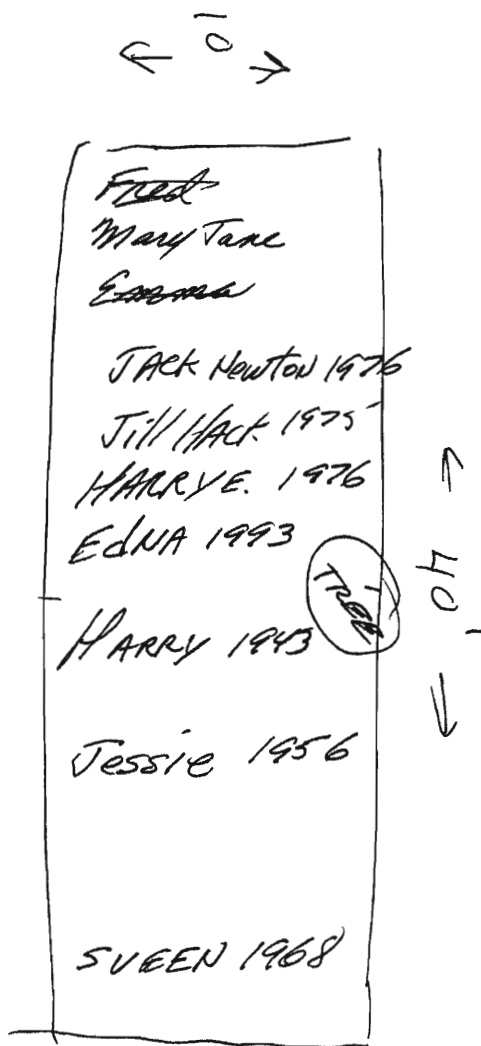 10'
Fred
Mary Jane
Emma
JACK Newton 1976
Jill HACK. 1975
HARRY E. 1976
EdNA 1993
TREE
40'
HARRY 1943
Jessie 1956
SVEEN 1968